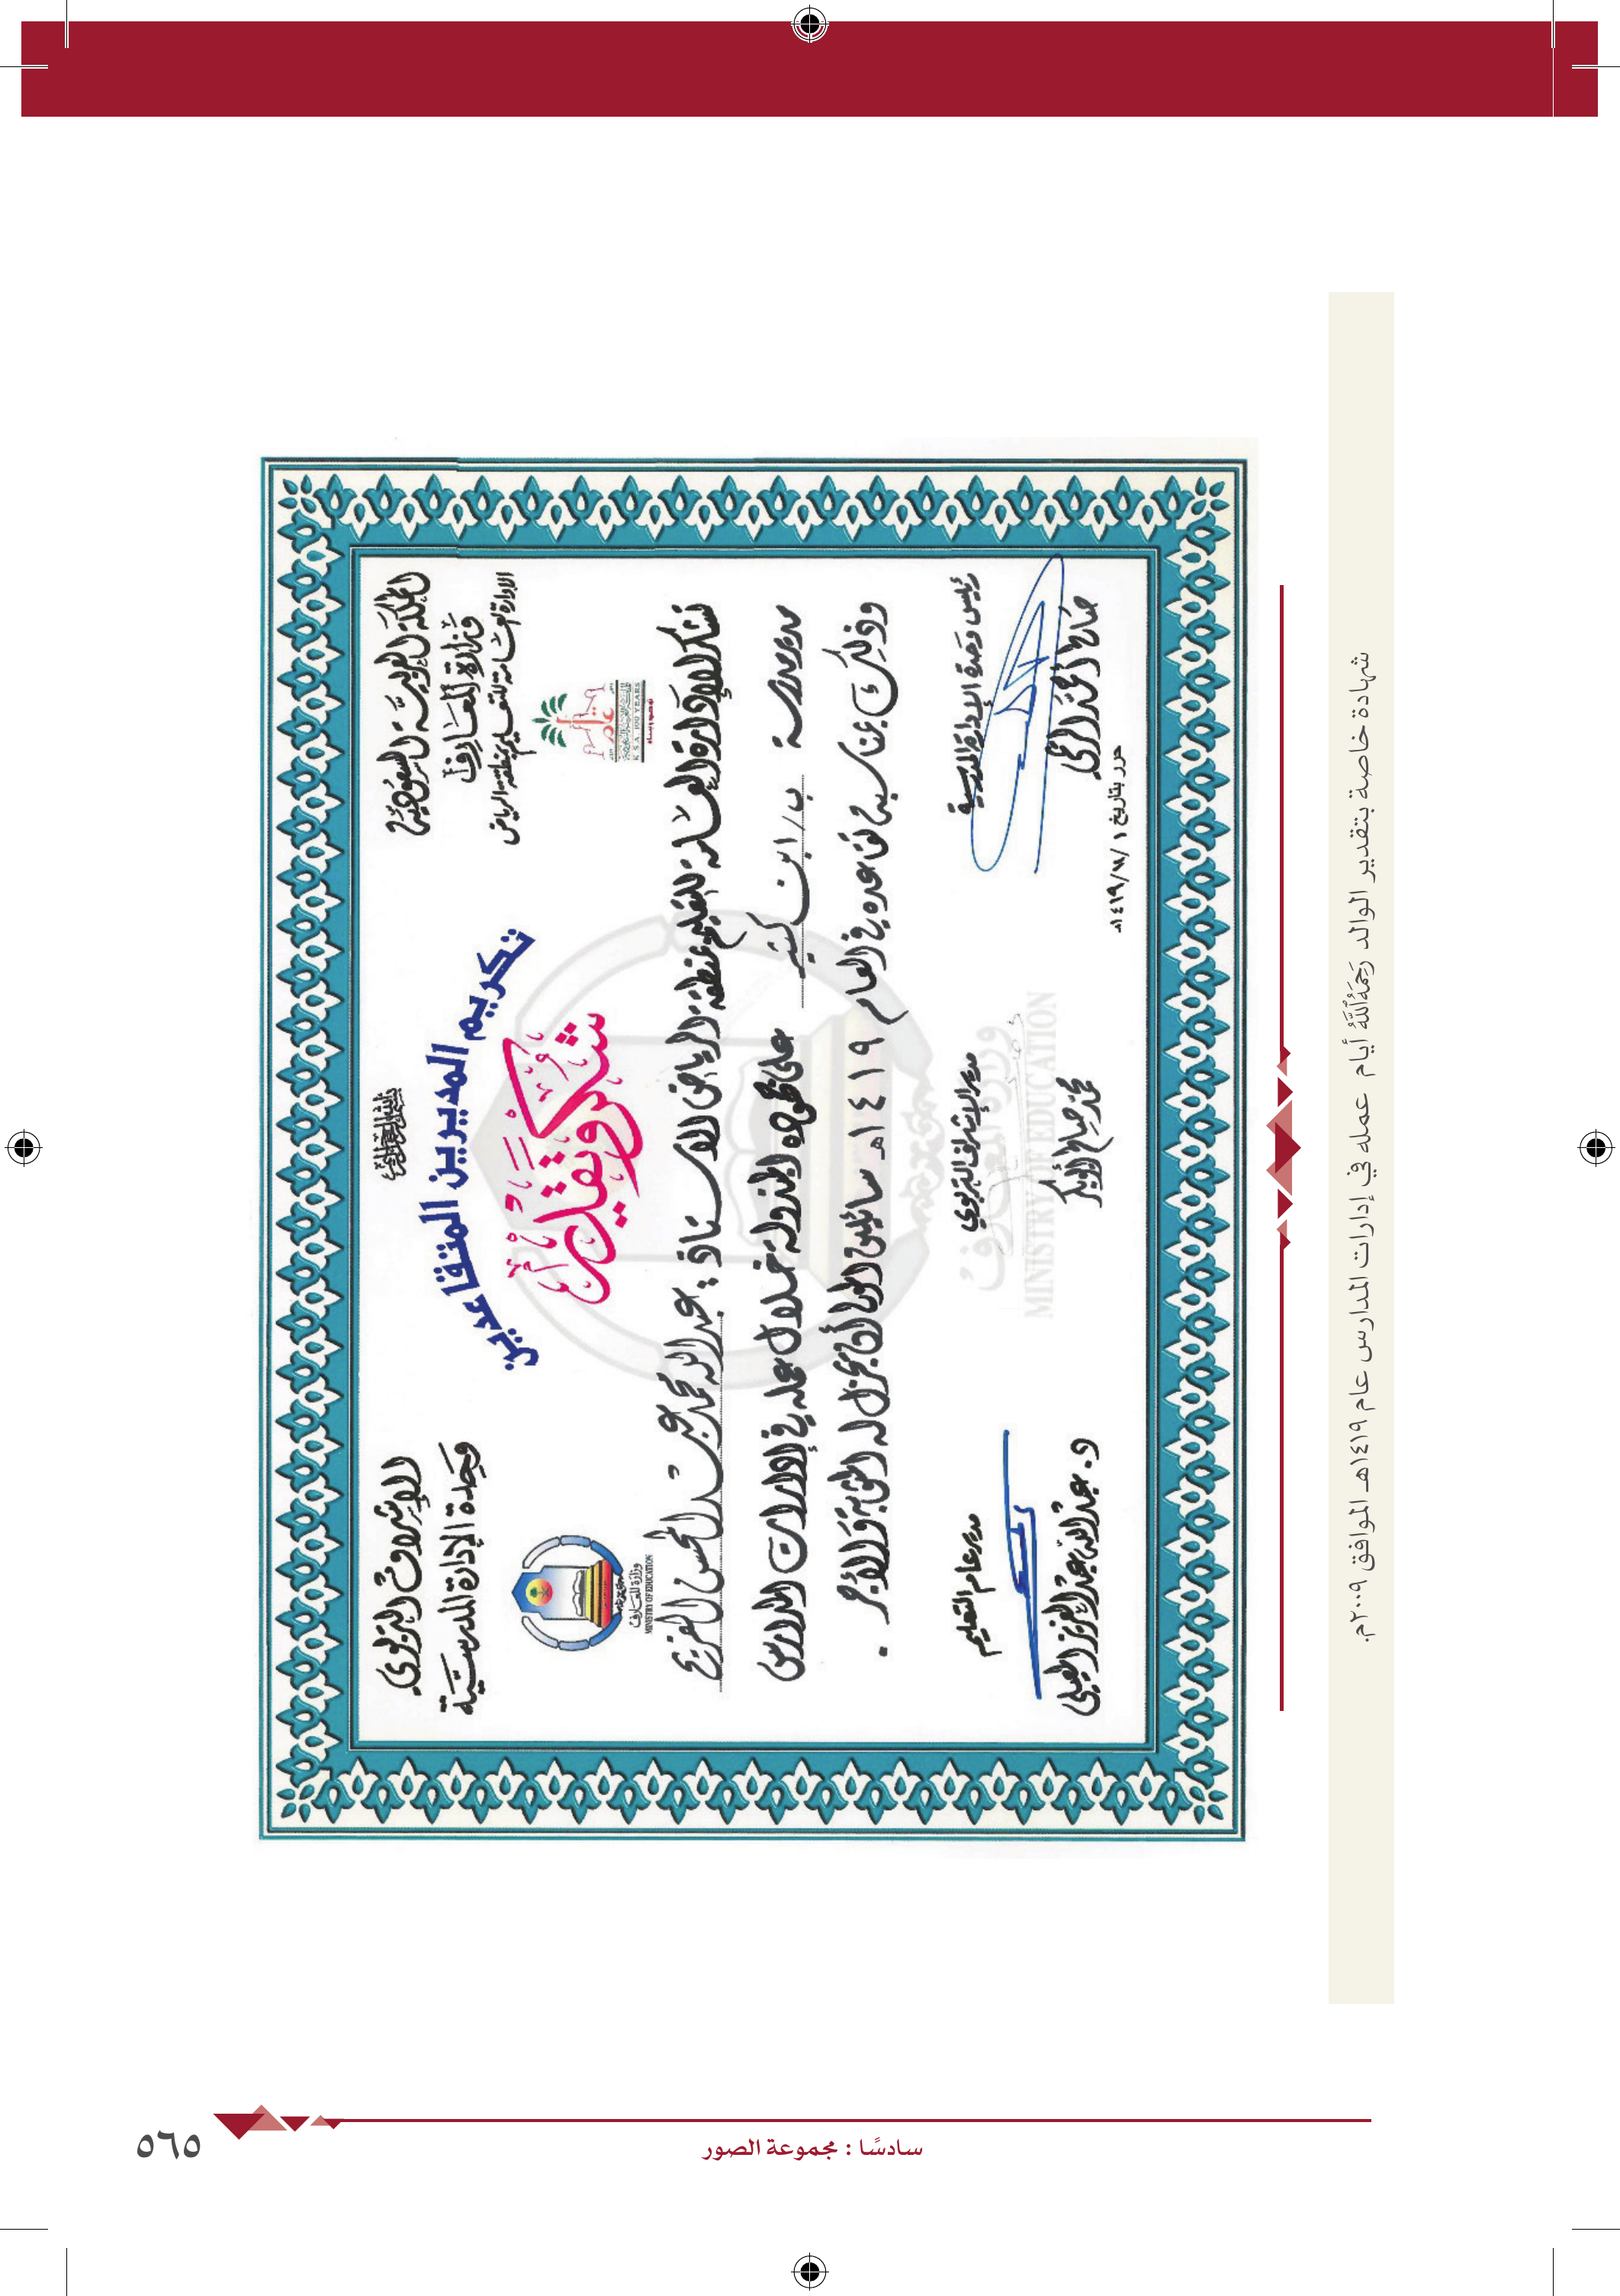 بسم الله الرحمن الرحيم
المملكة العربية السعودية
وزارة المعارف
الإدارة العامة للتعليم بمنطقة الرياض
مائة عام
K S A 100 YEARS
توحيد وبناء
الإشراف التربوي
وحدة الإدارة المدرسية
وزارة المعارف
MINISTRY OF EDUCATION
تكريم المديرين المتقاعدين
شكر وتقدير
تشكر الإدارة العامة للتعليم بمنطقة الرياض الأستاذ : عبدالله محمد عبدالمحسن المفريج
مدير مدرسة ب/ ابن كثير على جهوده المبذولة خلال عمله في إدارات المدارس
وذلك بمناسبة تقاعده في العام ١٤١٩هـ سائلين المولى أن يجزل له المثوبة والأجر .
رئيس وحدة الإدارة المدرسية
مدير الإشراف التربوي
مدير عام التعليم
د. عبدالله عبدالعزيز المعيلي
حرر بتاريخ ١ /١١/ ١٤١٩هـ
وزارة المعارف
MINISTRY OF EDUCATION
شهادة خاصة بتقدير الوالد رَحِمَهُ اللَّهُ أيام عمله في إدارات المدارس عام ١٤١٩هـ الموافق ٢٠٠٩م.
سادسًا : مجموعة الصور
٥٦٥